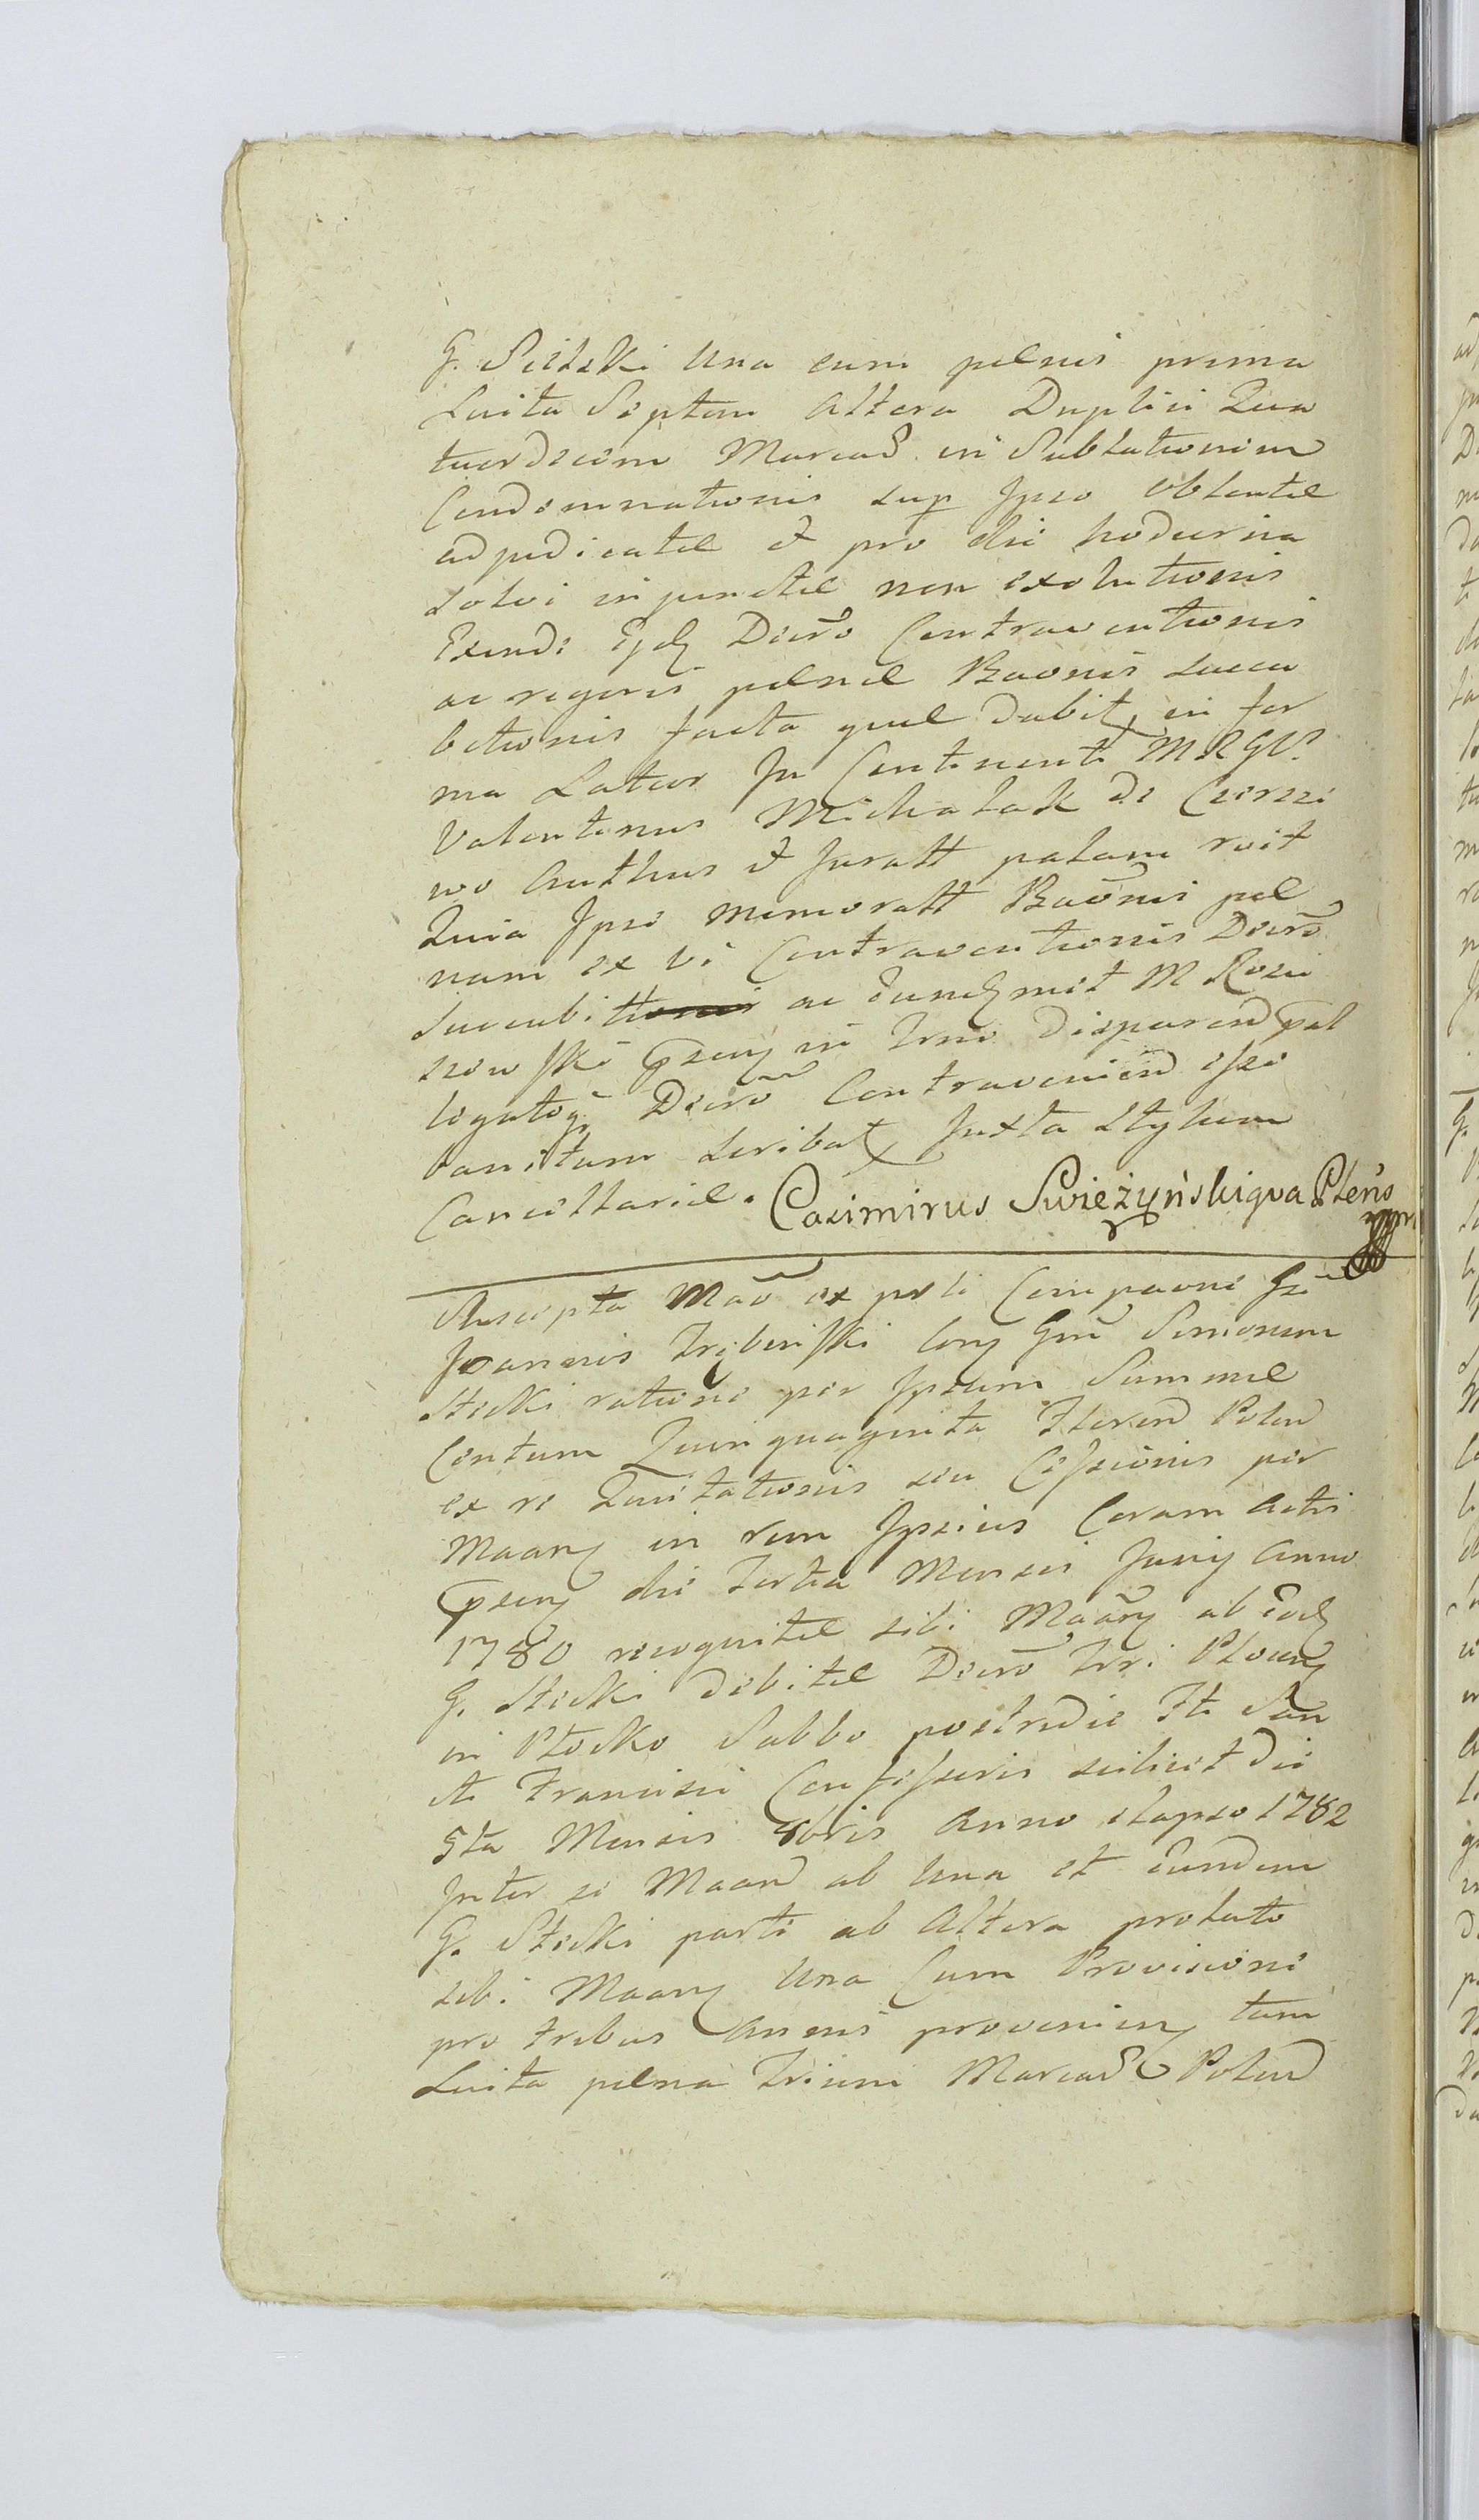 G. Sielski una cum pœnis prima
Luita Septem altera Duplici Qua
tuordecim Marcar. in Sublationem
Condemnationis sup Ipso obtentæ
adjudicatæ et pro die hodierna
solvi injunctæ non exolutionis
Exinde Ejdq Decro Contraventionis
ac rigoris pœnæ Baonis succu
bitionis facta quæ dabitq in for
ma Latior In Continenti MRGV.
Valentinus Michalak de Czerni
wo Authus et Juratt palam roit
Quia Ipse memoratt Baonis pœ
nam ex vi Contraventionis Decro
succubit ac Eundq met M Rosci
szewski pseny in Trno disparend
legatoq Decro Contravenien esse
banitum scribatq Juxta Stylum
Cancellariæ. Casimirus Swieżyński qva Ptens
Suscepta Mao ex parte Comparne Gsi
Joannis Trębinski cony Gm Simonem
Stecki ratione per Ipsum Summæ
Centum Quinquaginta Floren Polon
ex re Quitationis seu Cessionis per
Maany in rem Ipsius Coram actis
pseny die tertia Mensis Junij anno
1780 recognitæ sibi Maany ab Eodq
G. Stecki debitæ Decro Trri Plocens
in Plocko Sabbo postridie Fti San
cti Francisci Confessoris scilicet die
5ta Mensis 8bris Anno elapso 1782
Inter se Maan ab una et Eundem
G. Stecki parte ab Altera prolato
sibi Maany una Cum Provisione
pro tribus Annis provenien tum
Luita pœna Trium Marcar Polon